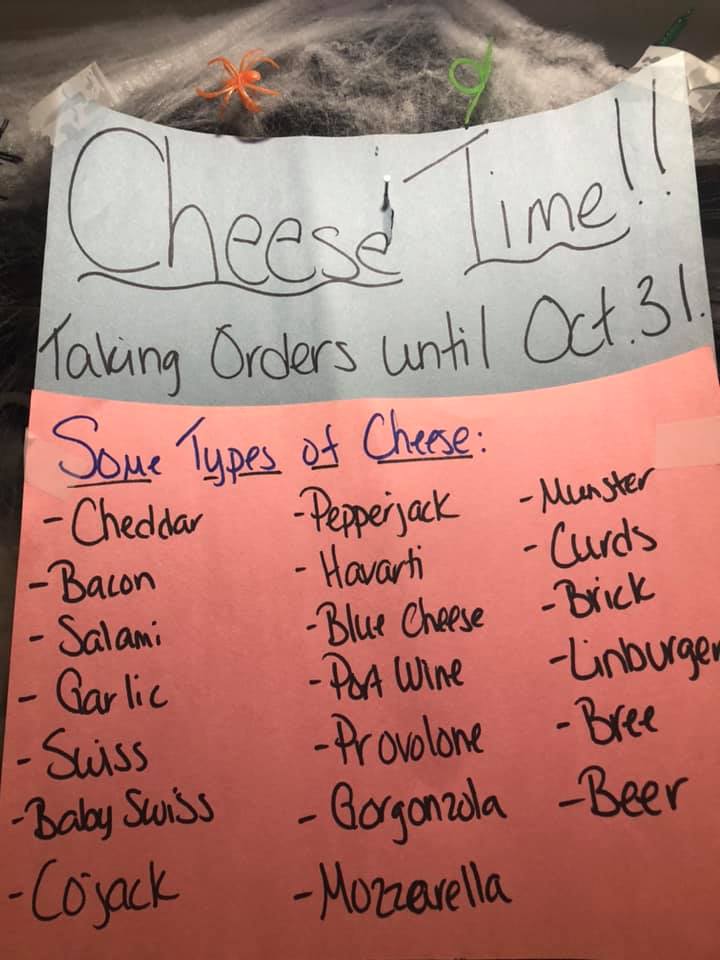 Cheese Time!!
Taking Orders until Oct. 31.
Some Types of Cheese:
- Cheddar
- Bacon
- Salami
- Garlic
- Swiss
- Baby Swiss
- Cojack
- Pepperjack
- Havarti
- Blue Cheese
- Port Wine
- Provolone
- Gorgonzola
- Mozzarella
- Munster
- Curds
- Brick
- Linburger
- Bree
- Beer